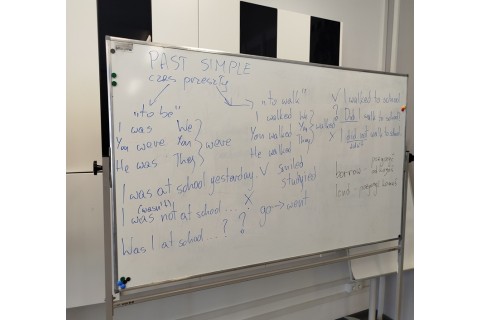 PAST SIMPLE
czas przeszły
"to be"
I was We
You were You were
He was They
I was at school yesterday. ✓
(wasn't)
I was not at school... X
Was I at school...? ?
"to walk"
I walked We
You walked You walked
He walked They
smiled
go → went
✓ I walked to school
? Did I walk to school
X I did not walk to school
didn't
borrow -
lend -